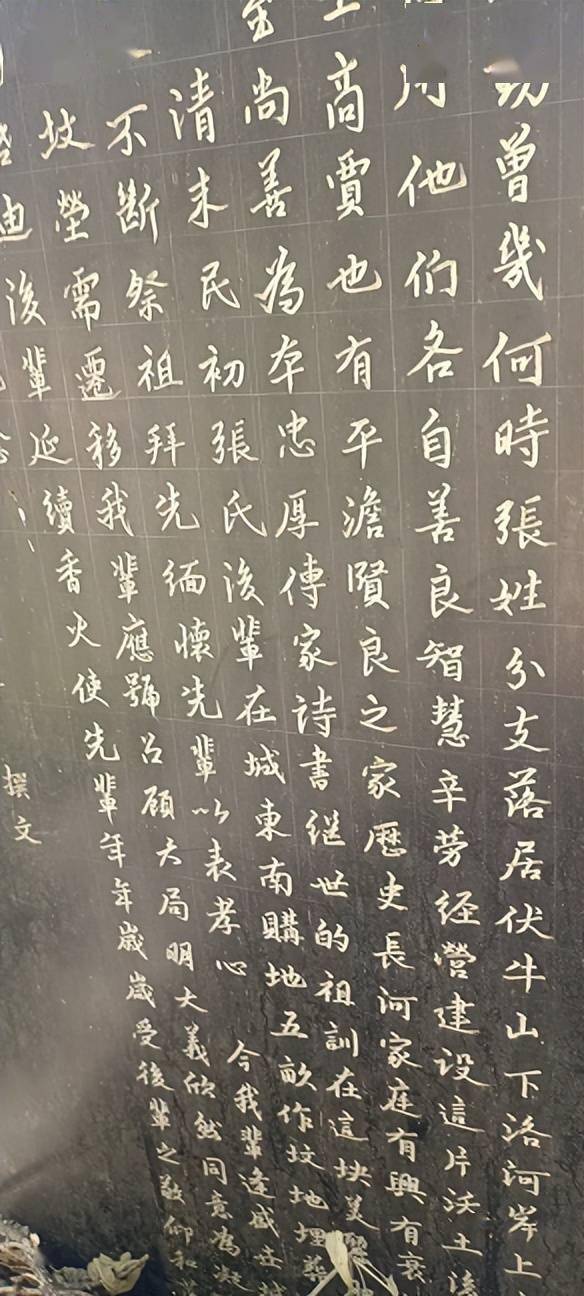 曾幾何時張姓分支落居伏牛山下洛河岸上
他们各自善良智慧辛劳经營建设這片沃土
上商賈也有平澹賢良之家歷史長河家庭有興有衰
尚善為本忠厚傳家詩書继世的祖訓在這块美
清末民初張氏後輩在城東南購地五畝作坟地埋葬
不斷祭祖拜先缅懷先輩以表孝心 今我輩逢盛世
坟塋需遷移我輩應號召顾大局明大義欣然同意為
後輩延續香火使先輩年年歲歲受後輩之敬仰和
迪
撰文